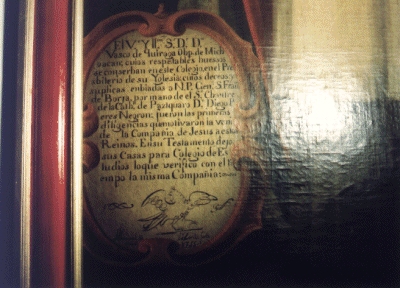 El V. Yll. S. D. D.
Vasco de Quiroga Obp. de Mich
oacan; cuios respetables huesos
se conserban en este Colegio, en el Pres
biterio de su Yglesia; cuios deceos y
suplicas enbiadas a N. P. Gen. S. Fran.
de Borja, por mano de el S. Chantre
de la Cath. de Pasquaro D. Diego P
erez Negron; fueron las primeras
diligencias que motivaron la veni
da de la Compañia de Jesus a estos
Reinos. En su Testamento de
sus Casas para Colegio de Es
tudios loque verificó con el t
empo la misma Compañia